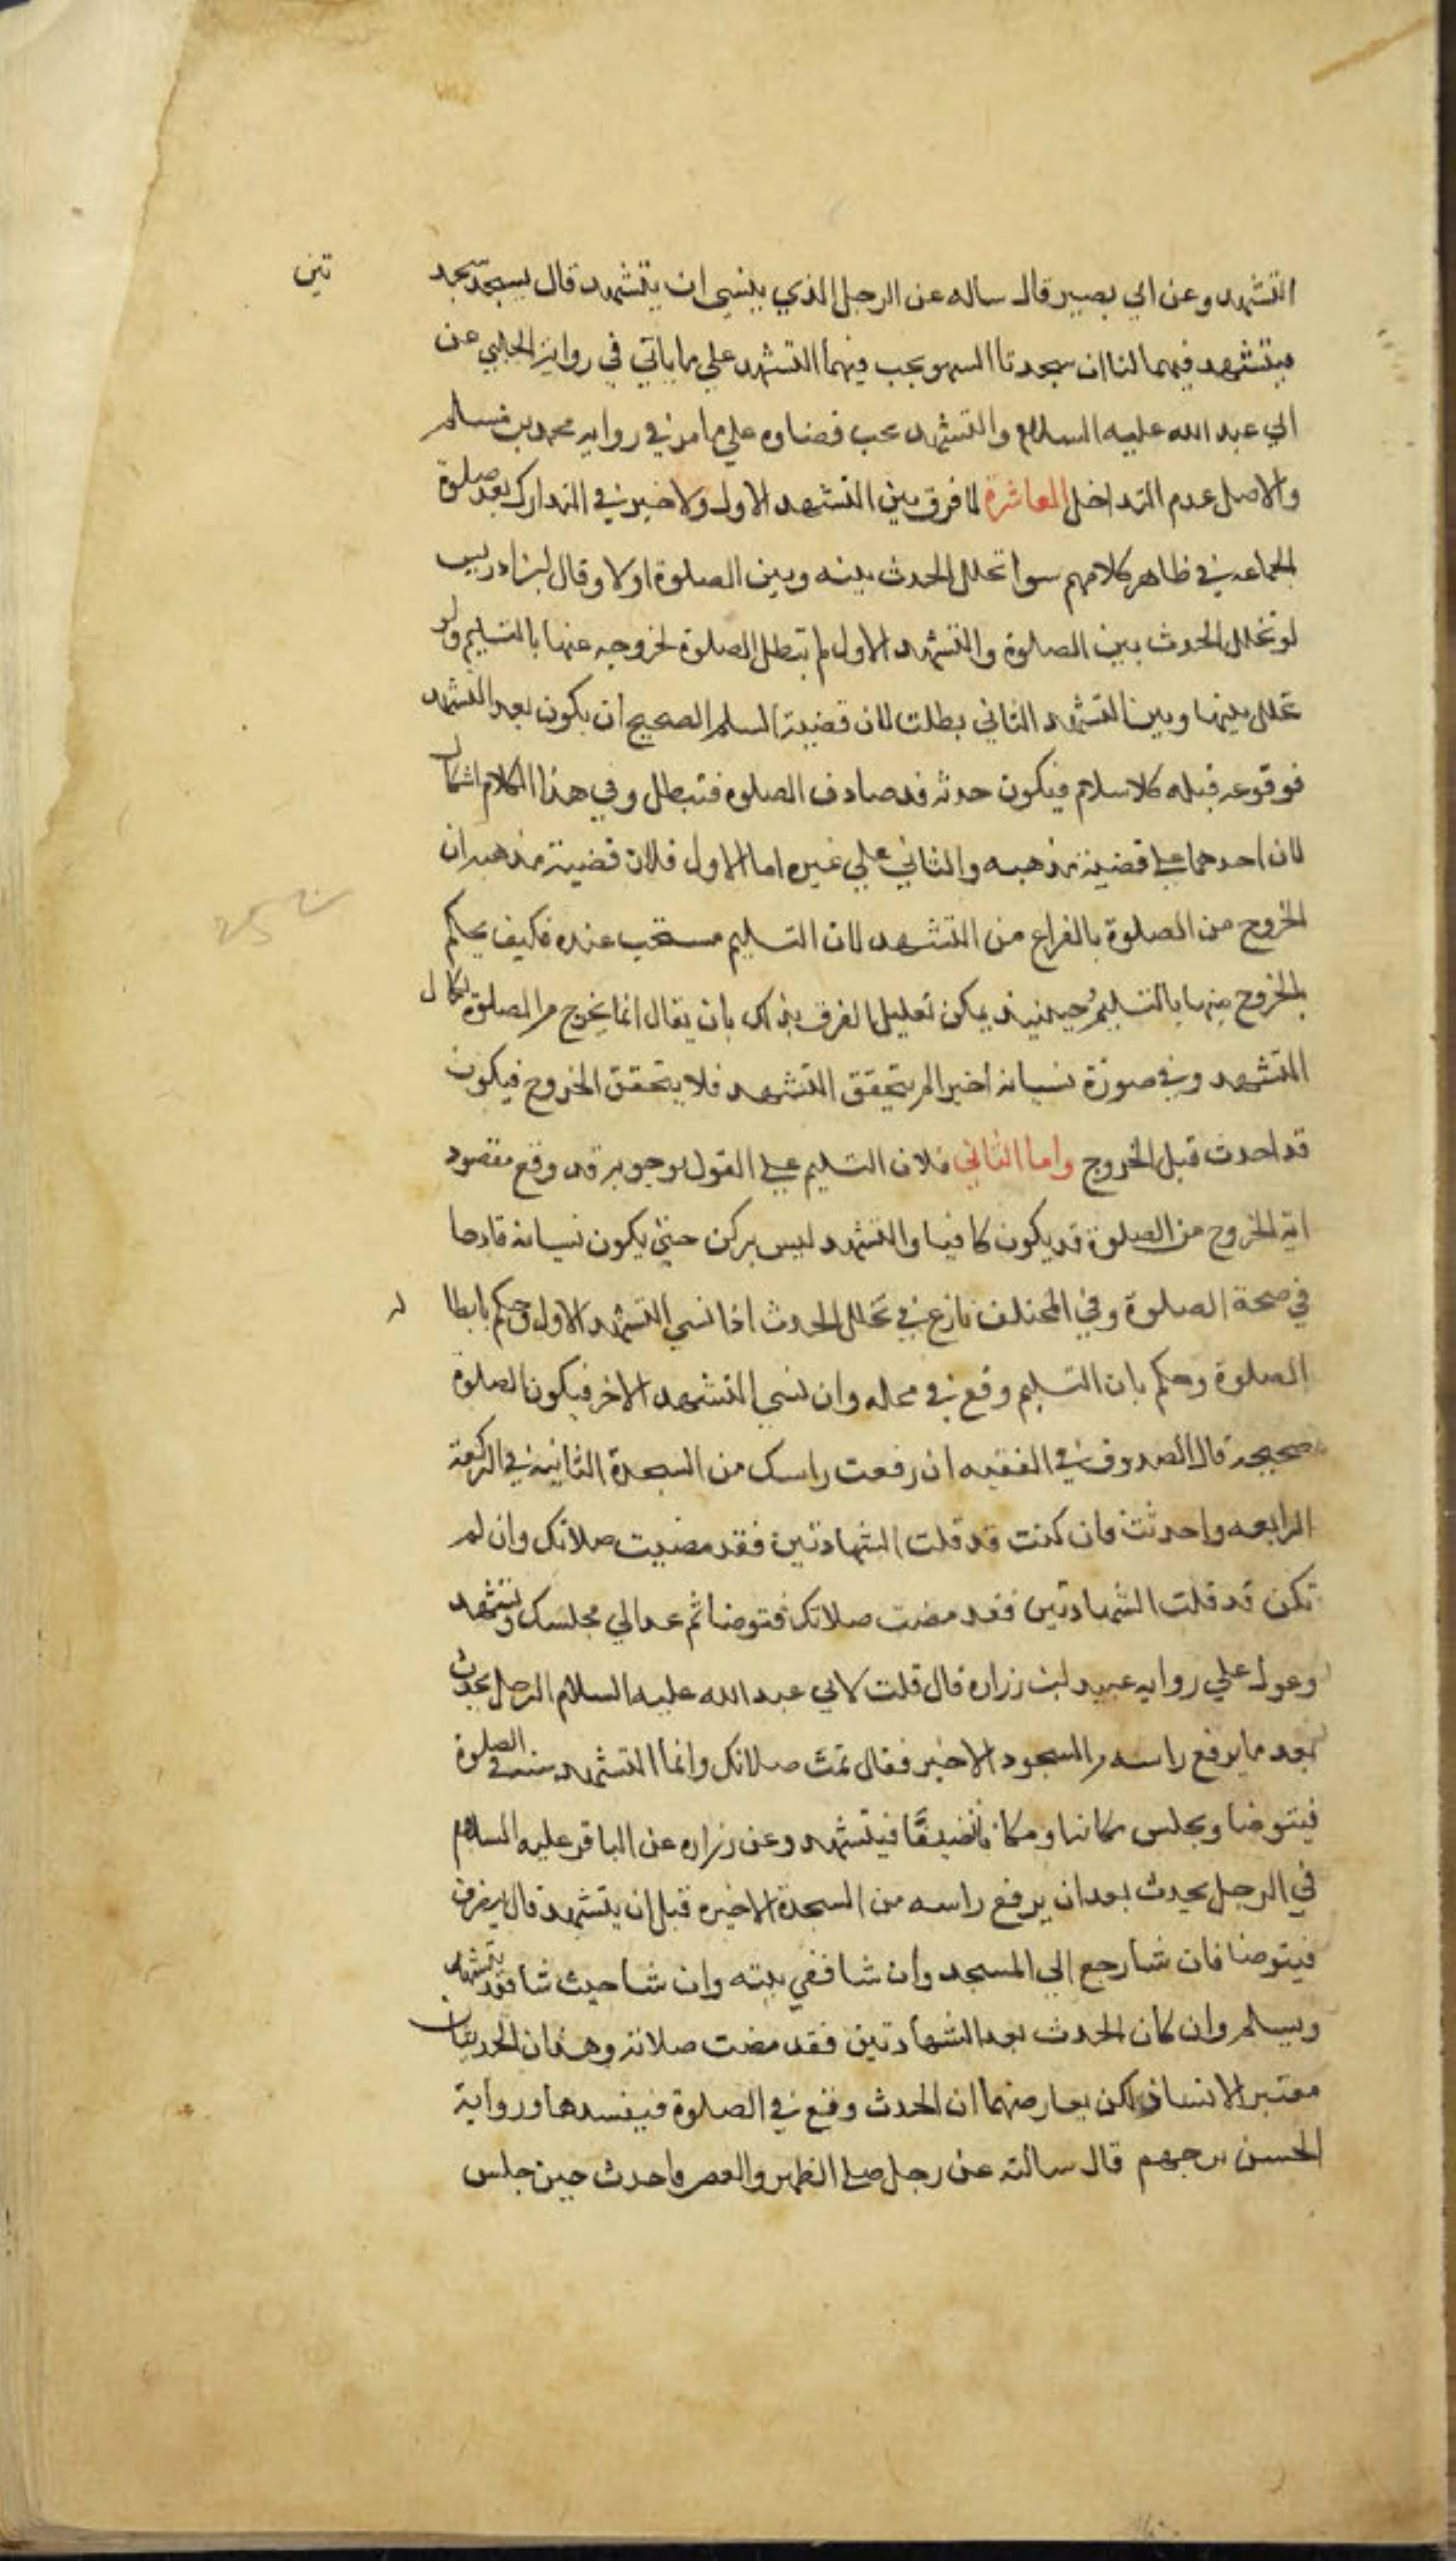 التشهد وعن ابي بصير قال ساله عن الرجل الذي ينسى ان يتشهد قال يسجد سجد تين
يتشهد فيهما لنا ان سجدتا السهو يجب فيهما التشهد علي ما ياتي في رواية الحلبي عن
ابي عبد الله عليه السلام والتشهد يجب قضاوه علي ما مر في روايه محمد بن مسلم
والاصل عدم التداخل العاشرة لا فرق بين التشهد الاول والاخير في التدارك بعد صلوة
الجماعه في ظاهر كلامهم سوا تخلل الحدث بينه وبين الصلوة اولا وقال ابن ادريس
لو تخلل الحدث بين الصلوة والتشهد الاول لم تبطل الصلوة لخروجه عنها بالتسليم ولو
تخلل بينها وبين التشهد الثاني بطلت لان قضية السلم الصحيح ان يكون بعد التشهد
فوقوعه قبله كلا سلام فيكون حدثه قد صادف الصلوه فتبطل وفي هذا الكلام اشكال
لان احدهما علي قضية مذهبه والثاني علي غيره اما الاول فلان قضية مذهبه ان
الخروج من الصلوة بالفراع من التشهد لان التسليم مستحب عنده فكيف يحكم
بالخروج منها بالتسليم وحينيذ يمكن تعليل الفرق بذلك بان يقال انما يخرج من الصلوة بكمال
التشهد وفي صورة نسيانه اخيرا لم يتحقق التشهد فلا يتحقق الخروج فيكون
قد احدث قبل الخروج واما الثاني فلان التسليم علي القول بوجوبه قد وقع مقصود
ابه الخروج من الصلوة قد يكون كافيا والتشهد ليس بركن حتي يكون نسيانه قادحا
في صحة الصلوة وفي المختلف نازع في تخلل الحدث اذا نسي التشهد الاول وحكم بابطا ل
الصلوة وحكم بان التسليم وقع في محله وان نسي التشهد الاخر فيكون الصلوة
صحيحة قال الصدوق في الفقيه ان رفعت راسك من السجدة الثانيه في الركعة
الرابعه واحدثت فان كنت قد قلت الشهادتين فقد مضيت صلاتك وان لم
تكن قد قلت الشهادتين فقد مضت صلاتك فتوضا ثم عد الي مجلسك وتشهد
وعول علي روايه عبيد ابن زراره قال قلت لابي عبد الله عليه السلام الرجل يحدث
بعد ما يرفع راسه من السجود الاخير فقال تمت صلاتك وانما التشهد سنه في الصلوة
فيتوضا ويجلس مكانه او مكانا نضيفًا فيتشهد وعن زراره عن الباقر عليه السلام
في الرجل يحدث بعد ان يرفع راسه من السجدة الاخيره قبل ان يتشهد قال ينصرف
فيتوضا فان شا رجع الي المسجد وان شا ففي بيته وان شا حيث شا فقد يتشهد
ويسلم وان كان الحدث بعد الشهادتين فقد مضت صلاته وهذان الحديثان
معتبر الاسناد لكن يعارضهما ان الحدث وقع في الصلوة فيفسدها ورواية
الحسن بن جهم قال سالته عن رجل صلي الظهر والعصر فاحدث حين جلس